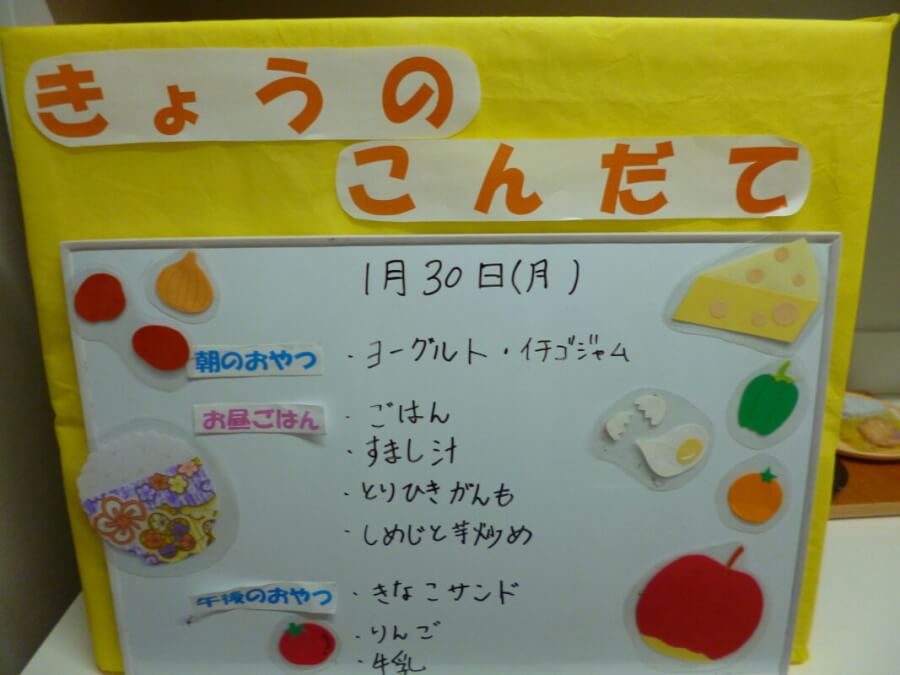 きょうの
こんだて
1月30日(月)
朝のおやつ ・ヨーグルト・イチゴジャム
お昼ごはん ・ごはん
・すまし汁
・とりひきがんも
・しめじと芋炒め
午後のおやつ ・きなこサンド
・りんご
・牛乳